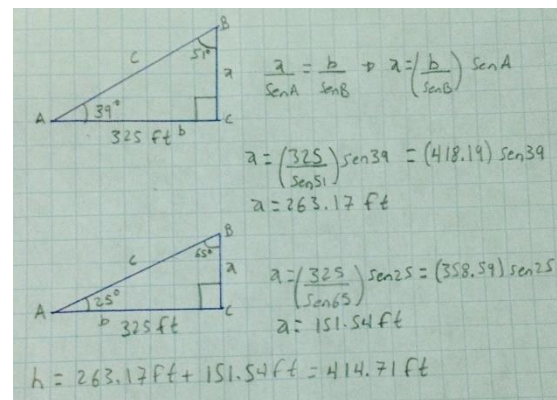 B
C
51°
a
A
39°
C
325 ft b
a/senA = b/senB → a=(b/senB) senA
a=(325/sen51)sen39 = (418.19) sen39
a=263.17 ft
B
C
65°
a
A
25°
C
b
325 ft
a=(325/sen65)sen25=(358.59)sen25
a=151.54ft
h = 263.17ft+151.54ft=414.71ft